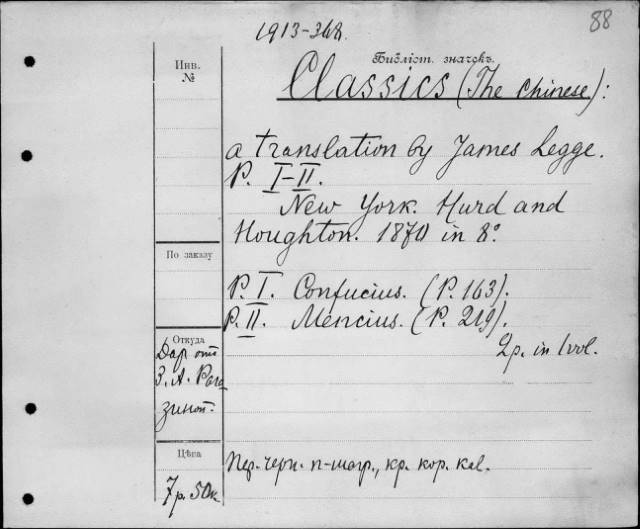 88
1913-368.
Библіот. значекъ.
Инв.
№
Classics (The Chinese):
a translation by James Legge.
P. I-II.
New York. Hurd and
Houghton. 1870 in 8º
По заказу
P. I. Confucius. (P. 163).
P. II. Mencius. (P. 219).
2 p. in 1 vol.
Откуда
Дар отъ
З. А. Рага
зиной.
Цѣна
7 р. 50 к
Пер. черн. п-шагр., кр. кор. кал.